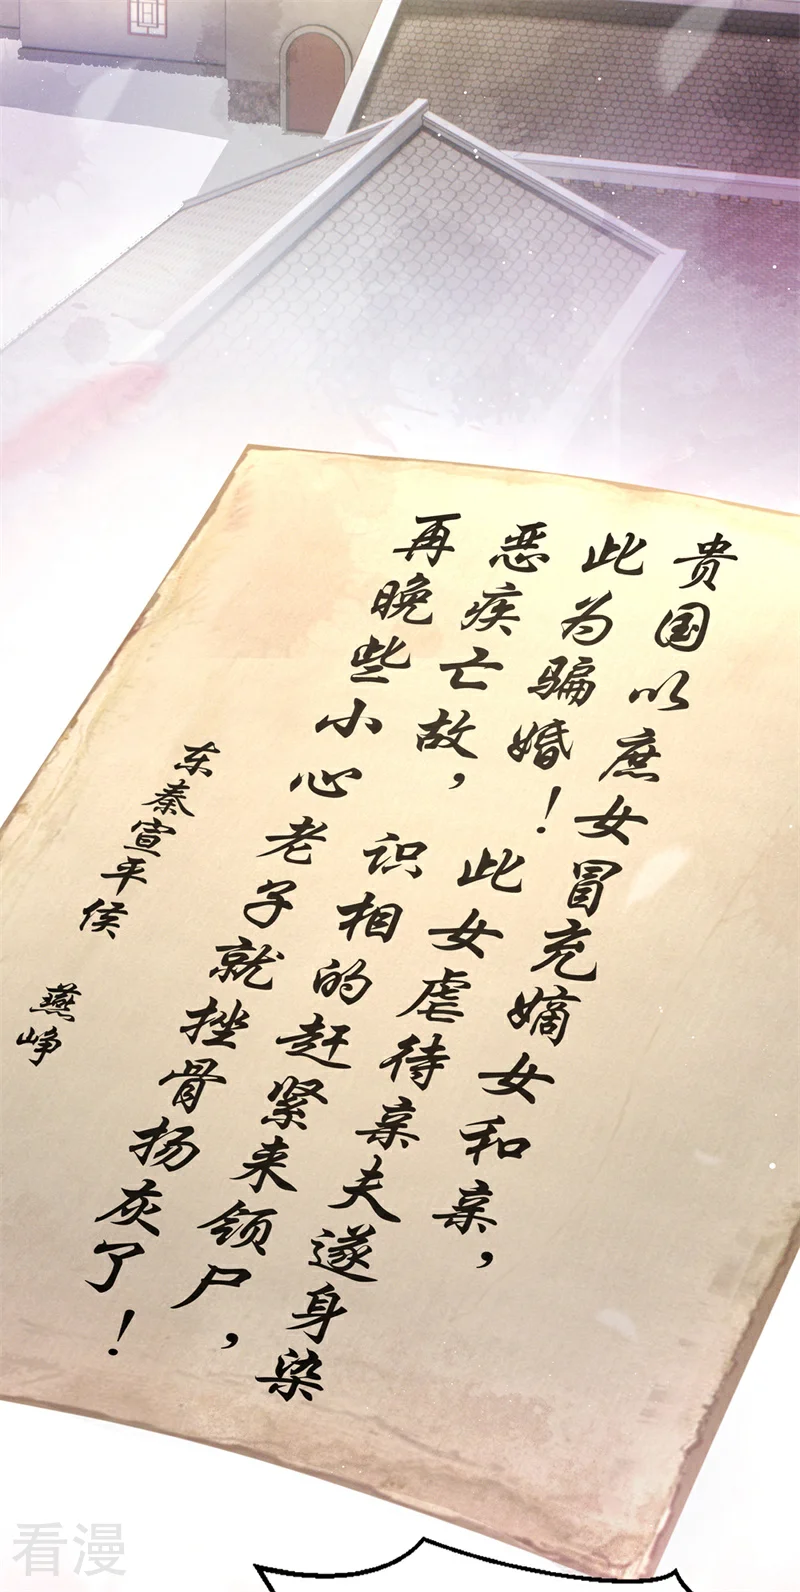 贵国以庶女冒充嫡女和亲，
此为骗婚！此女虐待亲夫遂身染
恶疾亡故，识相的赶紧来领尸，
再晚些小心老子就挫骨扬灰了！
东秦宣平侯 燕峥
看漫